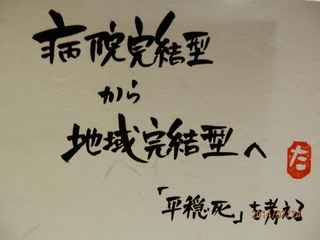 病院完結型
から
地域完結型へ
た
「平穏死」を考える